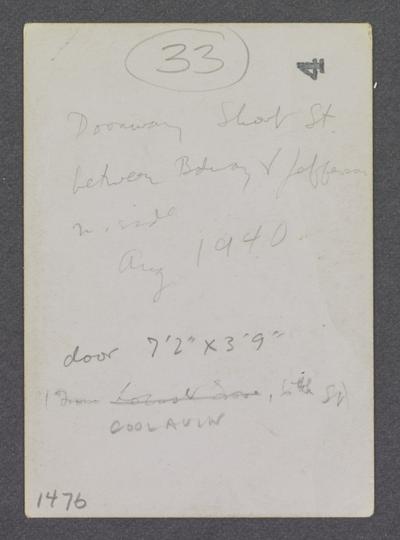 33
4
Doorway Short St.
between Bdway & Jefferson
n. side
Aug 1940
door 7'2" x 3'9"
from Locust Grove, 5th St)
COOLAVIN
1476